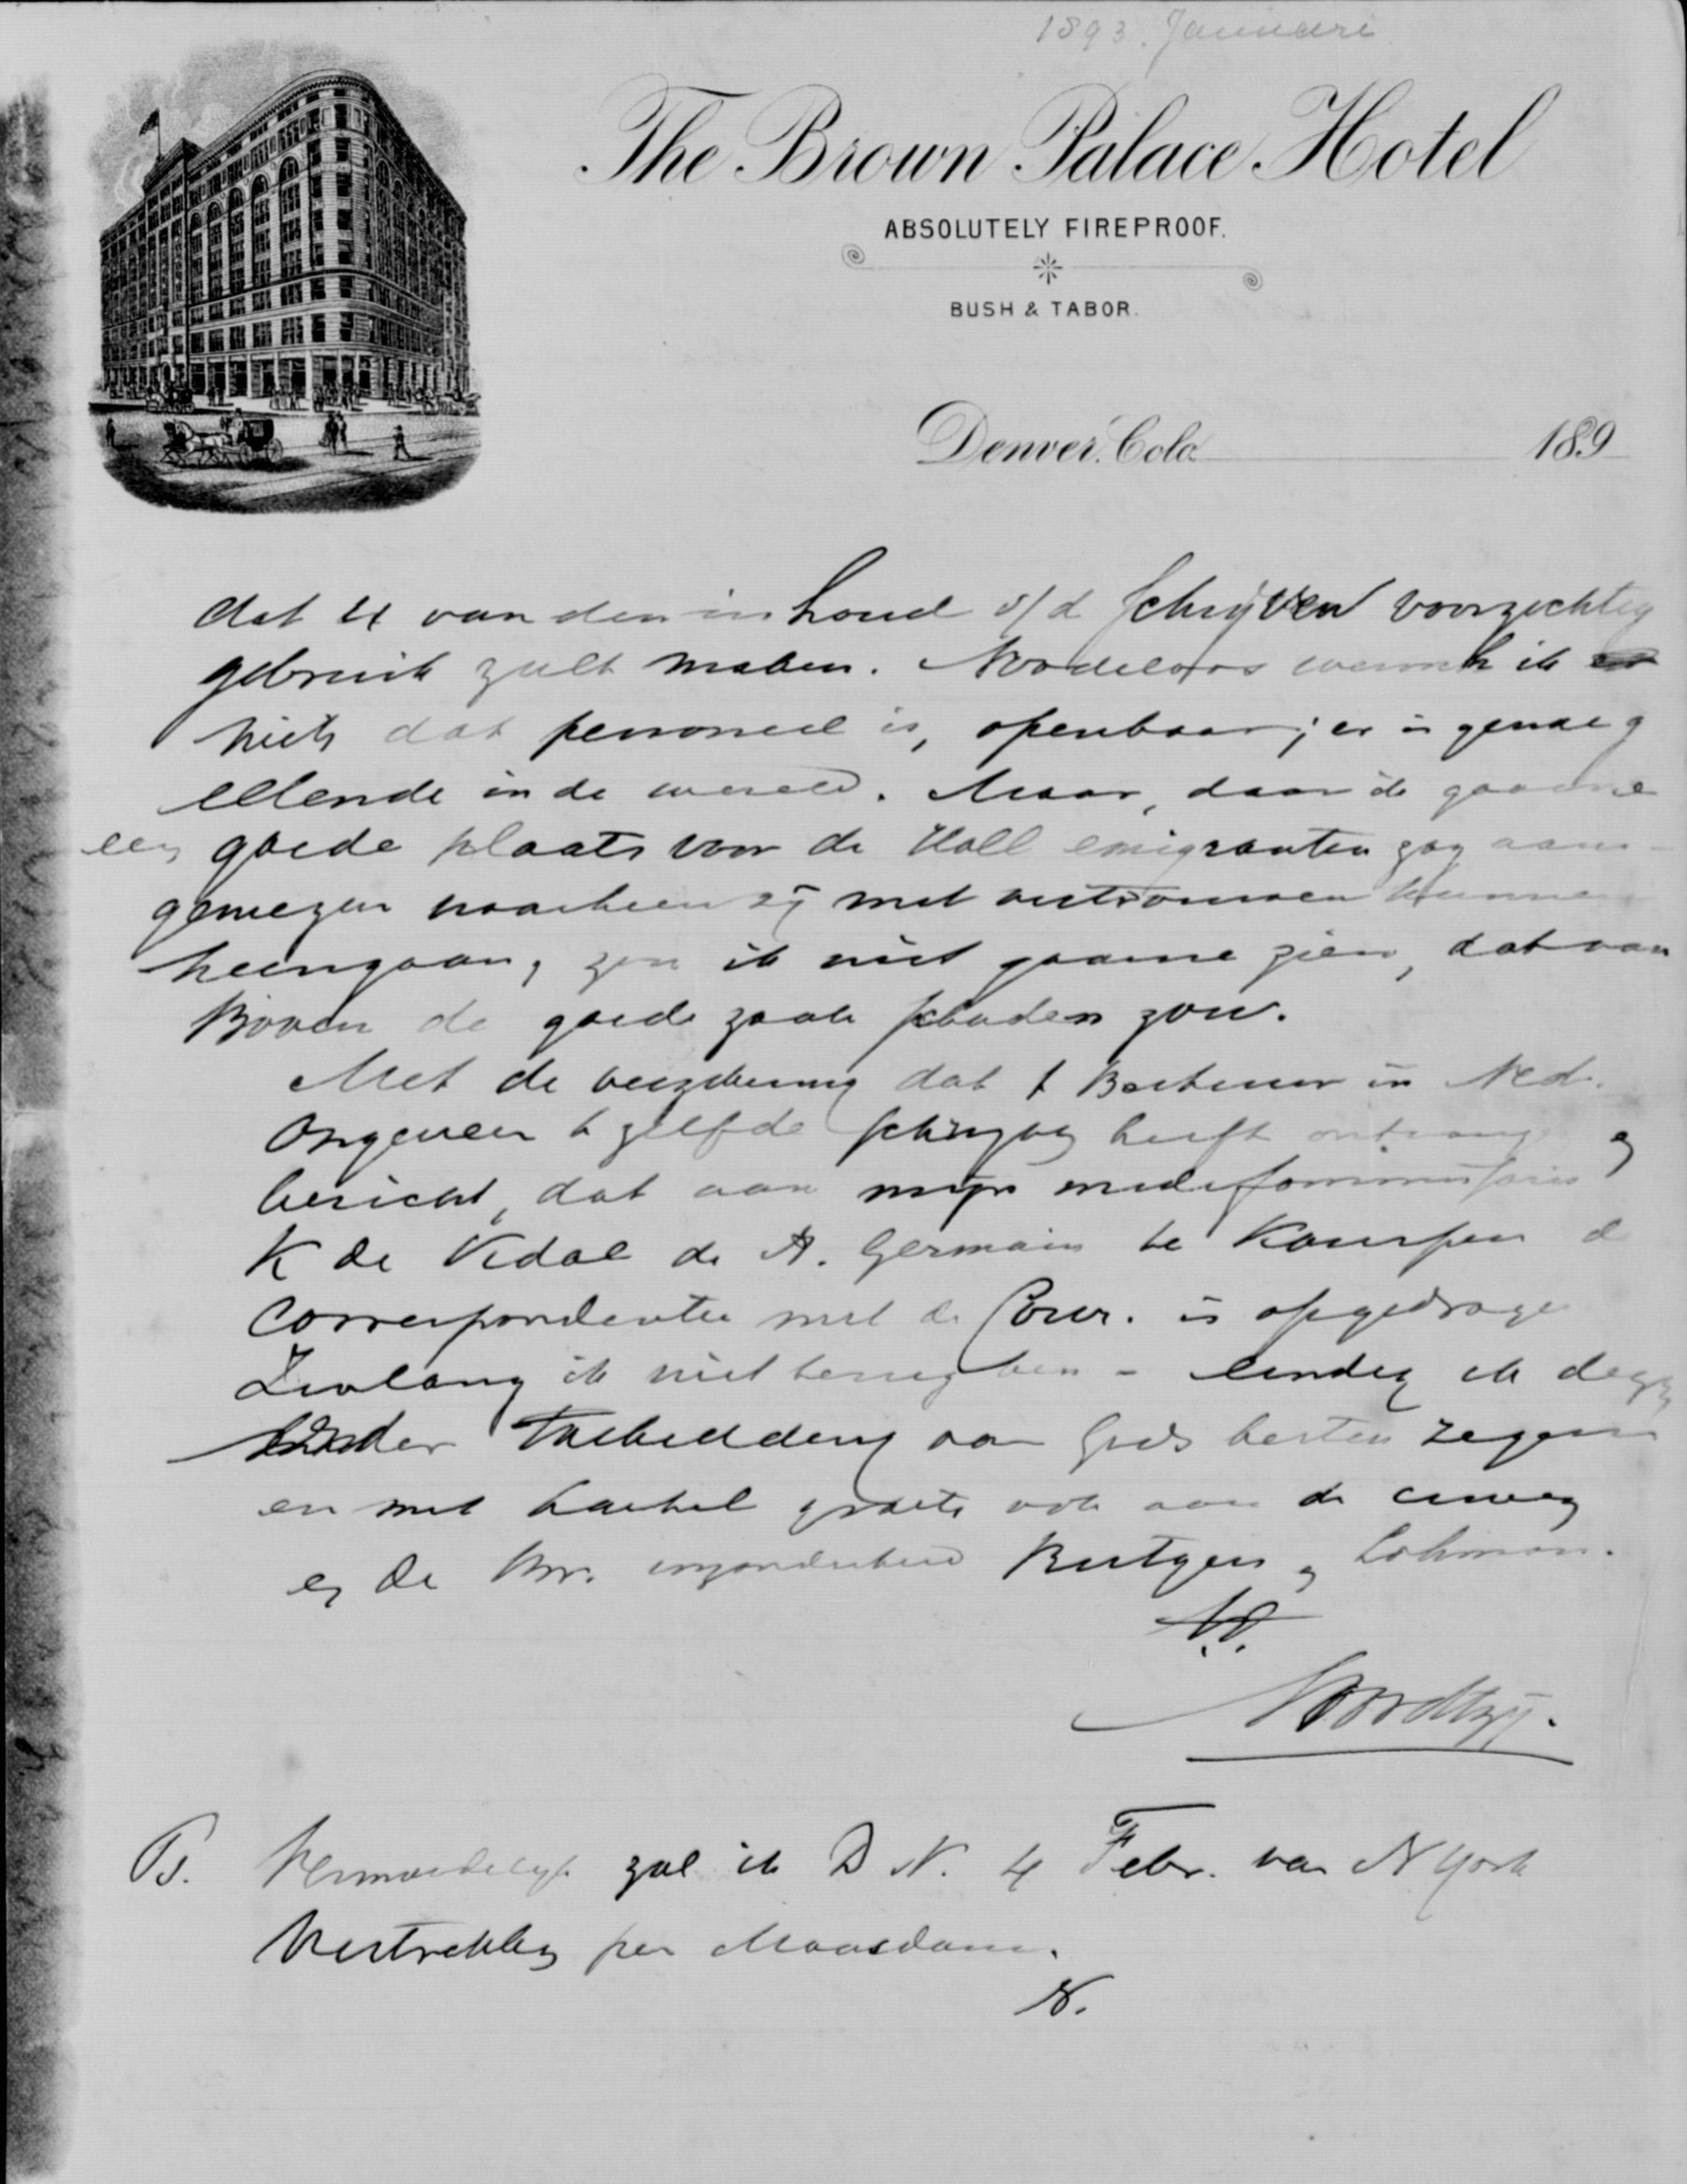 1893. Januari
The Brown Palace Hotel
ABSOLUTELY FIREPROOF.
BUSH & TABOR.
Denver. Colo. 189
dat U van den inhoud v/d schrijven voorzichtig
gebruik zult maken. Noodeloos wensch ik
niets dat personeel is, openbaar; er is genoeg
ellende in de wereld. Maar, daar ik gaarne
een goede plaats voor de Holl emigranten zag aan-
gewezen waarheen zij met vertrouwen kunnen
heengaan, zou ik niet gaarne zien, dat van
Boven de goede zaak schaden zou.
Met de verzekering dat t Bestuur in Ned.
ongeveer t zelfde schrijven heeft ontvangen
bericht, dat aan mijn medekommissaris
K de Vidal de St. Germain te Kampen d
correspondentie met de Cour. is opgedragen
Zoolang ik niet terug ben - eindig ik deze
onder Toebidding van Gods besten zegen
en met hartel groete ook aan de
en de Hrn. inzonderheid Rutgers en Lohman.
Noordtzij.
Ps. Vermoedelijk zal ik D N. 4 Febr. van N York
Vertrekken per Maasdam.
N.